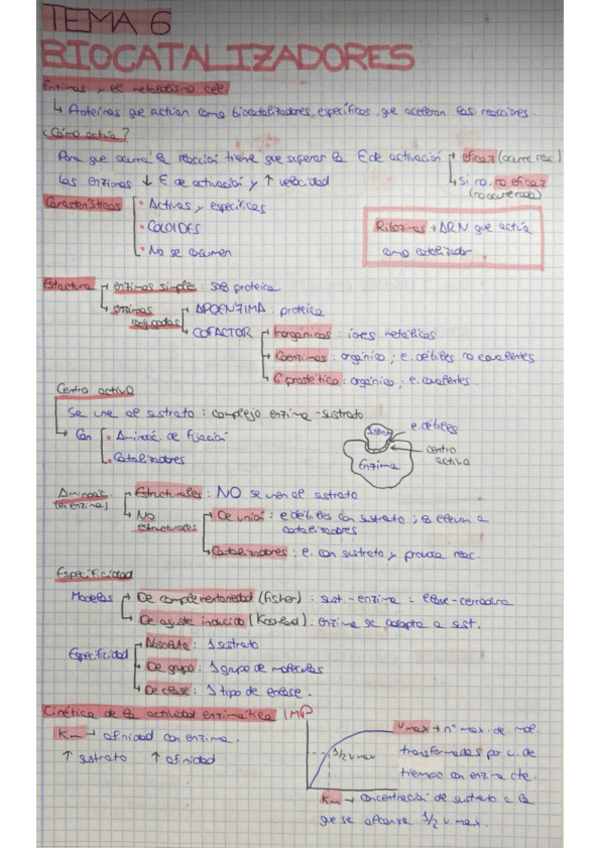 TEMA 6
BIOCATALIZADORES
Enzimas y el metabolismo cel.
↳ Proteínas que actúan como biocatalizadores específicos, que aceleran las reacciones.
¿Cómo actúa?
Para que ocurra la reacción tiene que superar la E de activación → eficaz (ocurre reac.)
Las enzimas ↓ E de activación y ↑ velocidad
↳ Si no, no eficaz
(no ocurre reac)
Características
• Activas y específicas
• COLOIDES
• No se consumen
Ribozimas → ARN que actúa
como catalizador
Estructura → enzimas simples: solo proteica
↳ enzimas conjugadas
→ APOENZIMA: proteica
↳ COFACTOR
→ Inorgánicos: iones metálicos
→ Coenzimas: orgánico; e. débiles no covalentes
↳ G. prostético: orgánico; e. covalentes.
Centro activo
Se une al sustrato: complejo enzima-sustrato
↳ Con
• Aminoác. de fijación
• Catalizadores
Sustrato
e. débiles
centro
activo
Enzima
Aminoác.
(en enzima)
→ Estructurales: NO se unen al sustrato
↳ NO
estructurales
→ De unión: e débiles con sustrato; lo llevan a
catalizadores
↳ Catalizadores: e. con sustrato y provoca reac.
Especificidad
Modelos
→ De complementariedad (Fisher): sust.-enzima = llave-cerradura
↳ De ajuste inducido (Koshland): enzima se adapta a sust.
Especificidad
→ Absoluta: 1 sustrato
→ De grupo: 1 grupo de moléculas
↳ De clase: 1 tipo de enlace.
Cinética de la actividad enzimática IMP
Km → afinidad con enzima.
↑ sustrato ↑ afinidad
1/2 v max
Vmax → nº max. de mol.
transformadas por u. de
tiempo con enzima cte.
Km → concentración de sustrato a la
que se alcanza 1/2 v. max.